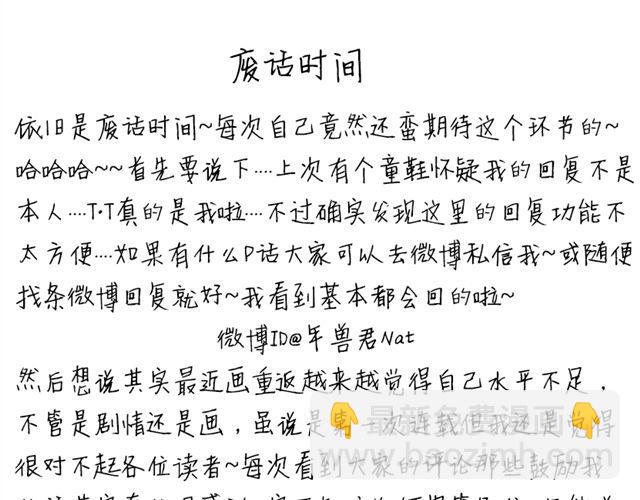 废话时间
依旧是废话时间~每次自己竟然还蛮期待这个环节的~
哈哈哈~~首先要说下····上次有个童鞋怀疑我的回复不是
本人····T·T真的是我啦····不过确实发现这里的回复功能不
太方便····如果有什么P话大家可以去微博私信我~或随便
找条微博回复就好~我看到基本都会回的啦~
微博ID@年兽君Nat
然后想说其实最近画重返越来越觉得自己水平不足，
不管是剧情还是画，虽说是第一次连载但我还是觉得
很对不起各位读者~每次看到大家的评论那些鼓励我
最新免费漫画
www.baozimh.com